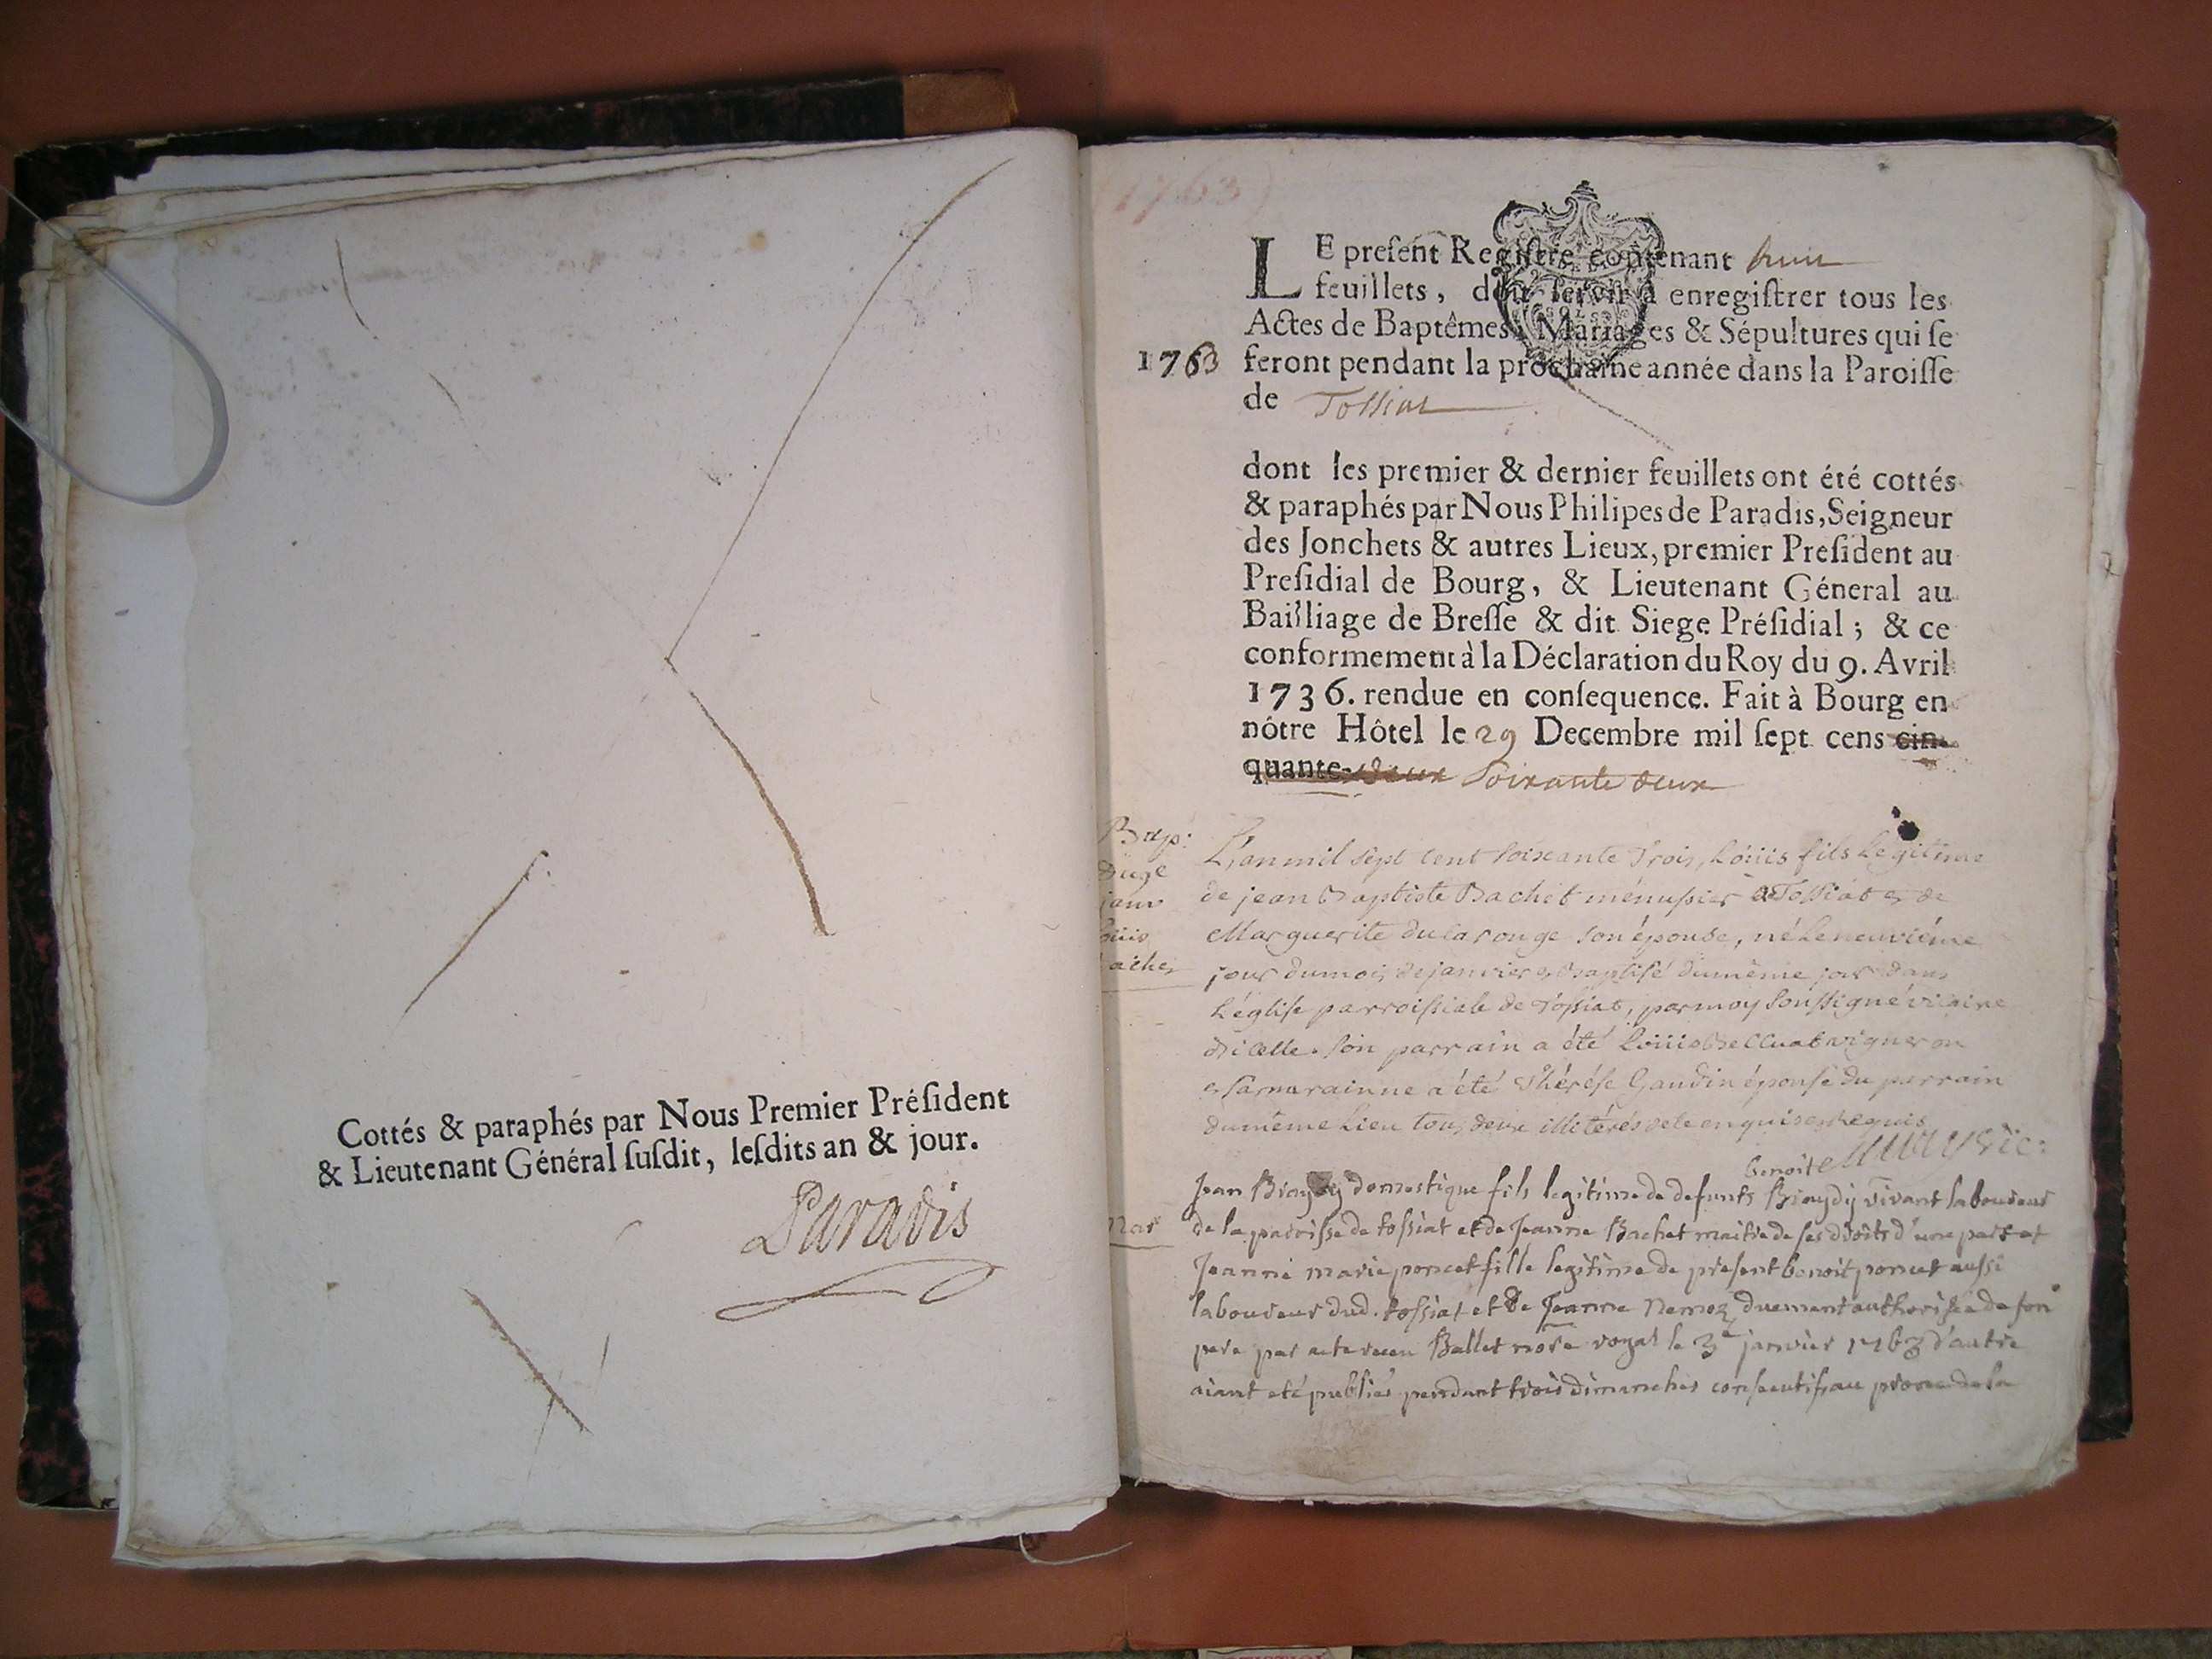 Cottés & paraphés par Nous Premier Préſident
& Lieutenant Général ſuſdit, leſdits an & jour.
Paradis
(1763)
LE preſent Regiſtre contenant huit
feuillets, doit ſervir à enregiſtrer tous les
Actes de Baptêmes, Mariages & Sépultures qui ſe
1763 feront pendant la prochaine année dans la Paroiſſe
de Tossiat
dont les premier & dernier feuillets ont été cottés
& paraphés par Nous Philipes de Paradis, Seigneur
des Jonchets & autres Lieux, premier Preſident au
Preſidial de Bourg, & Lieutenant Géneral au
Bailliage de Breſſe & dit Siege Préſidial ; & ce
conformement à la Déclaration du Roy du 9. Avril
1736. rendue en conſequence. Fait à Bourg en
nótre Hôtel le 29 Decembre mil ſept cens cin-
quante-deux Soixante deux
Bap:
janv
Loüis
L'an mil sept cent soixante trois, Loüis fils Legitime
de jean Baptiste Bachet menusier de Tossiat & de
Marguerite dularouge son épouse, né Le neuviéme
jour du mois de janvier & baptisé du même jour dans
L'église parroissiale de Tossiat, par moy soussigné vicaire
d'icelle. son parrain a été Loüis vigneron
& sa marainne a été Thérése Gaudin épouse du parrain
du même Lieu tous deux illitérés de ce enquis & requis
mar
Jean domestique fils legitime de defunts Benoit vivant laboureur
de la paroisse de tossiat et de Jeanne Bachet maitre de ses droits d'une part et
Jeanne marie poncet fille legitime de present benoit poncet aussi
laboureur dud. tossiat et de Jeanne duement authorisée de son
pere par acte recu Ballet nore royal le 3e janvier 1763 d'autre
aiant eté publiés pendant trois dimanches consecutifs au prone de la